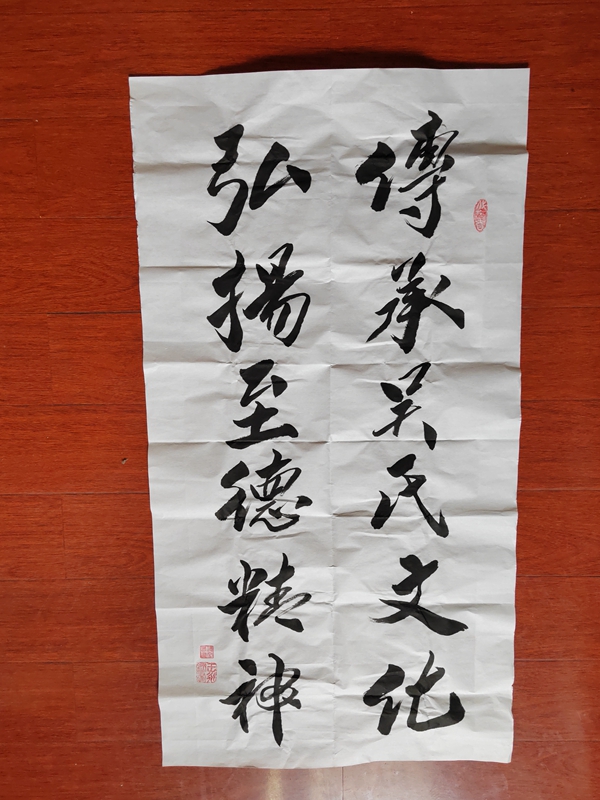 傳承吴氏文化
弘揚至德精神